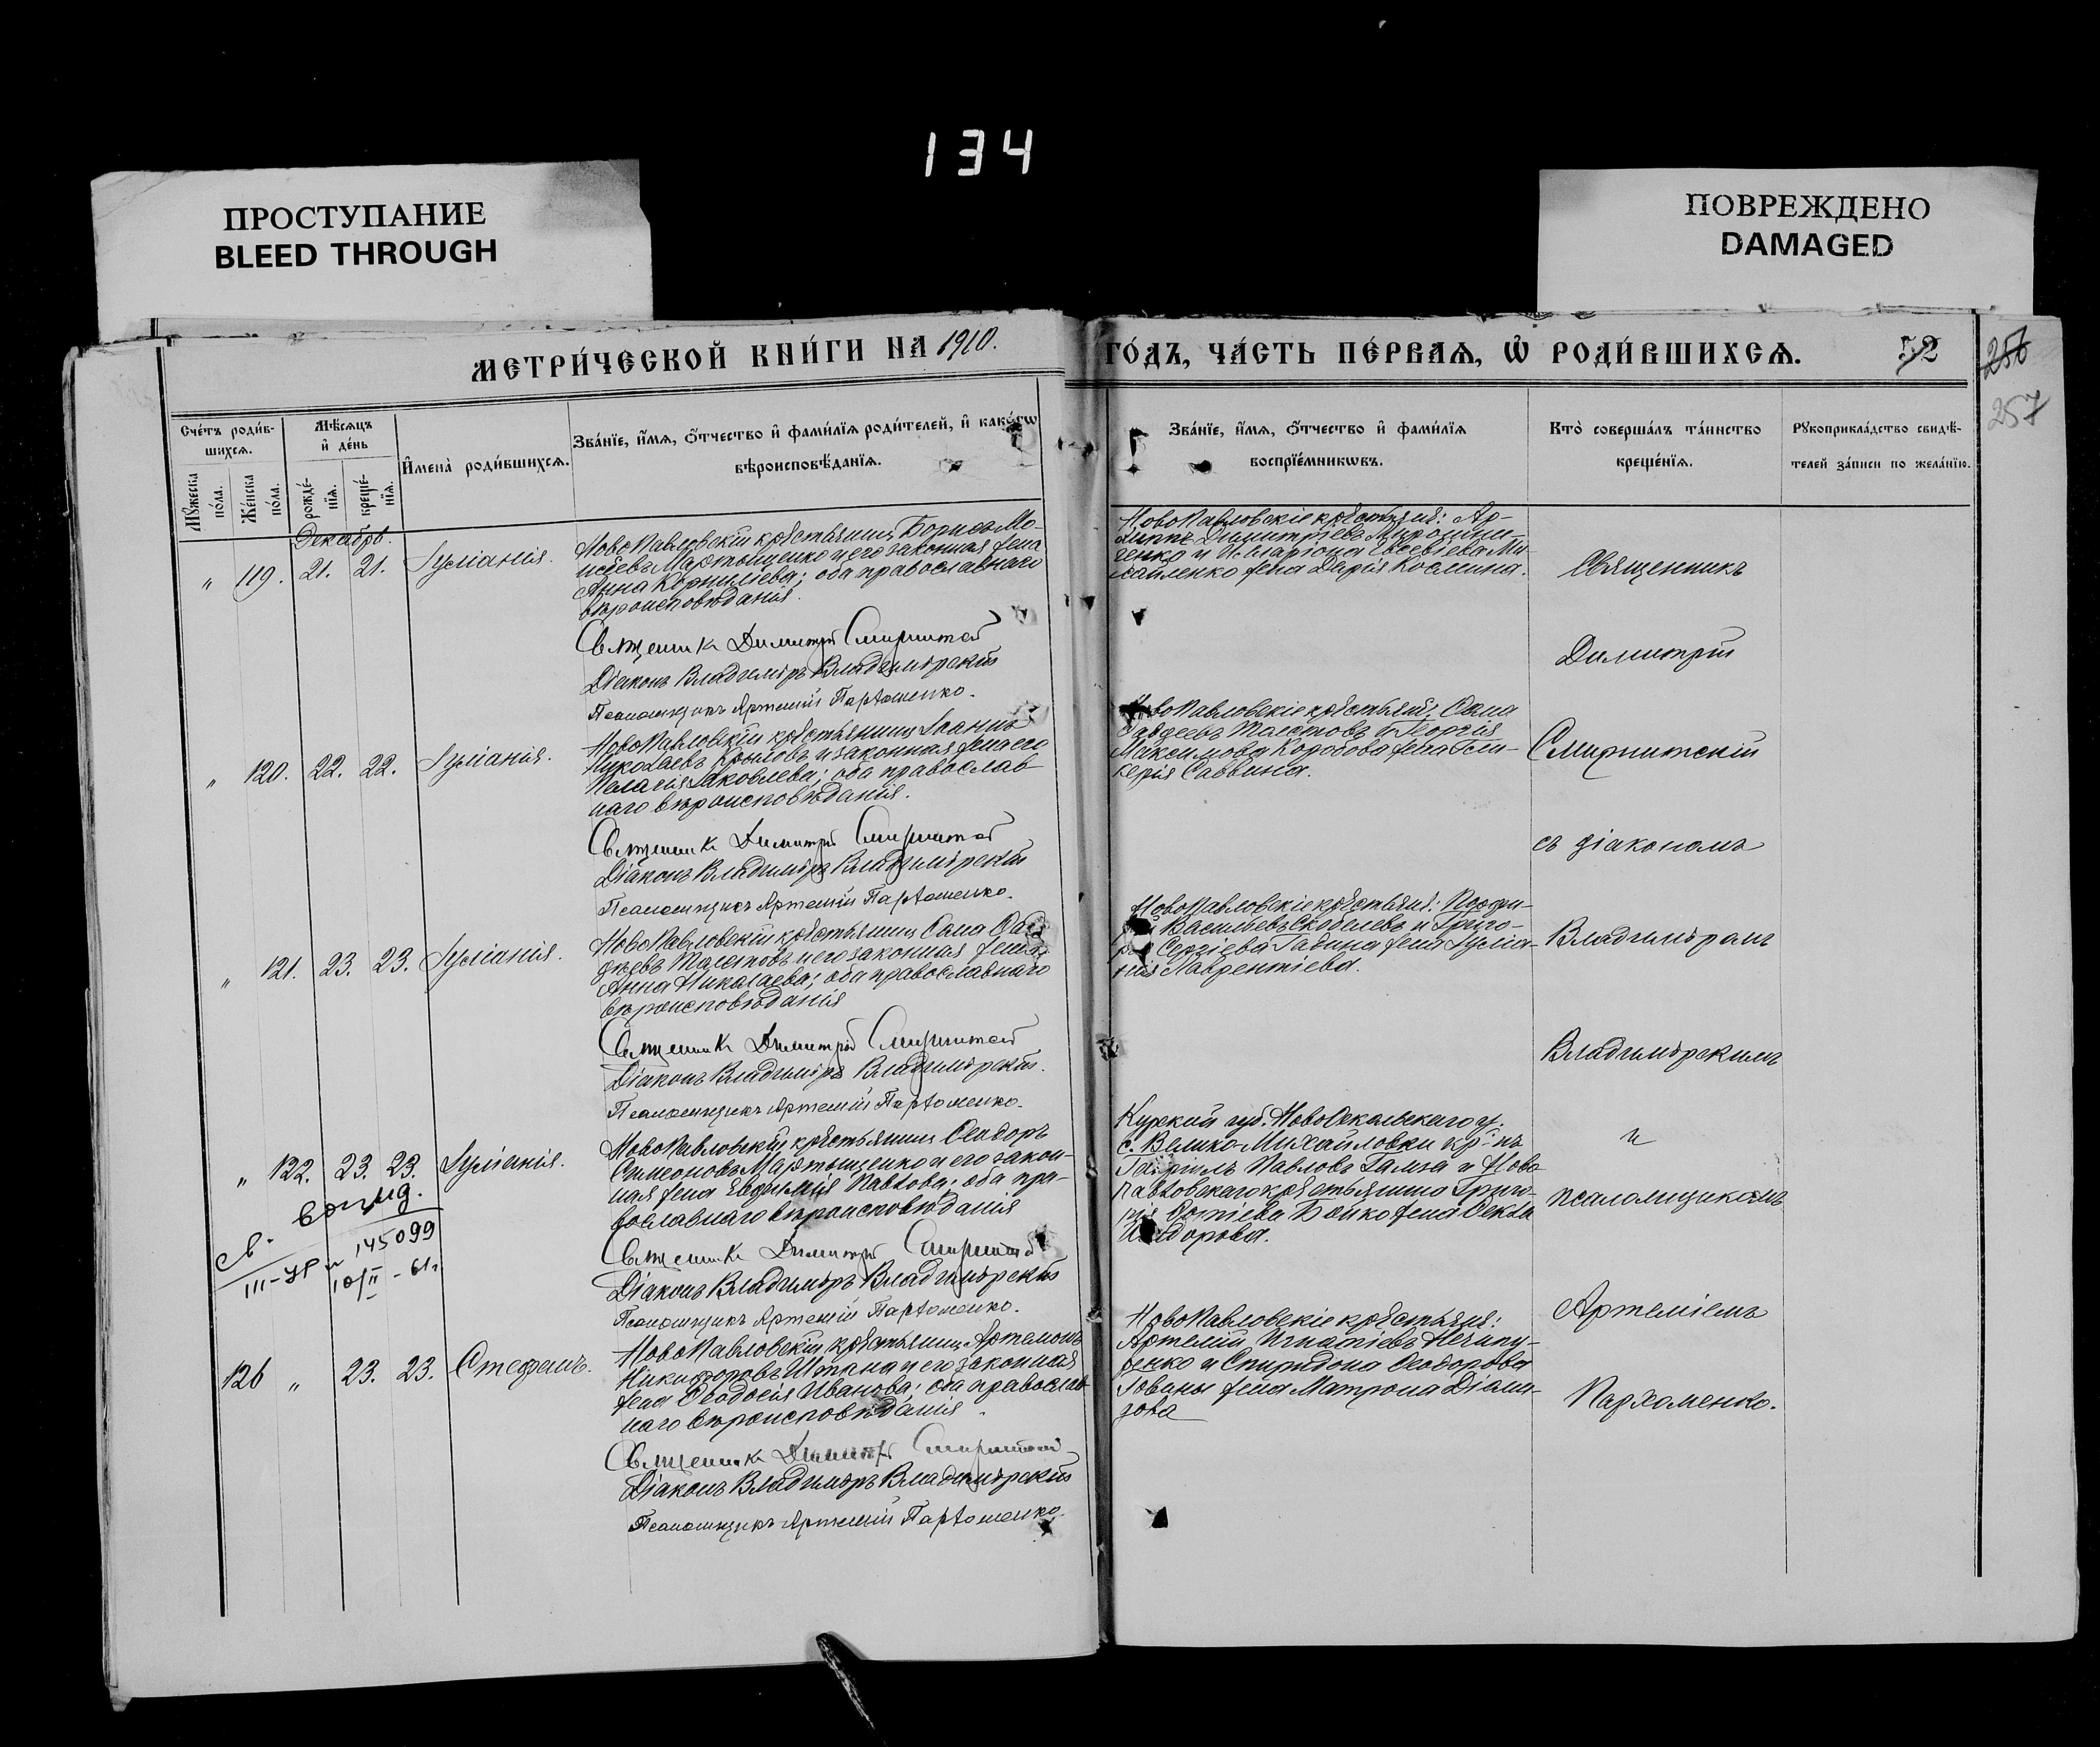 134
ПРОСТУПАНИЕ
BLEED THROUGH
ПОВРЕЖДЕНО
DAMAGED
МЕТРИ́ЧЕСКОЙ КНИ́ГИ НА 1910.
ГО́ДЪ, ЧА́СТЬ ПЕ́РВАѦ, Ѡ҆ РОДИ́ВШИХСѦ.
52
256
257
Сче́тъ роди́в-
шихсѧ.
Мꙋжеска по́ла.
Же́нска по́ла.
Мѣ́сѧцъ
и҆ де́нь
рожде́-
нїѧ.
креще́-
нїѧ.
И҆мена̀ роди́вшихсѧ.
Зва́нїе, и҆́мѧ, ѻ҆́тчество и҆ фами́лїѧ роди́телей, и҆ како́гѡ
вѣроисповѣ́данїѧ.
Зва́нїе, и҆́мѧ, ѻ҆́тчество и҆ фами́лїѧ
воспрїе́мникѡвъ.
Кто̀ соверша́лъ та́инство
креще́нїѧ.
Рꙋкоприкла́дство свидѣ́-
телей за́писи по жела́нїю.
Декабрь.
" 119. 21. 21. Іуліанія.
НовоПавловскій крестьянинъ Борисъ Мо-
исеевъ Мартыщенко и его законная жена
Анна Корнилiева; оба православнаго
вѣроисповѣданія.
Священникъ Димитрій
Діаконъ Владиміръ Владимірскій
Псаломщикъ Артемій Пархоменко.
НовоПавловскіе крестьяне: Ар-
Димитріевъ
жена Дарія Космина.
" 120. 22. 22. Іуліанія.
НовоПавловскій крестьянинъ Іоаннъ
Николаевъ Крыловъ и законная жена его
Пелагія Іаковлева; оба православ
наго вѣроисповѣданія.
Священникъ Димитрій
Діаконъ Владиміръ Владимірскій
Псаломщикъ Артемій Пархоменко.
НовоПавловскіе крестьяне: Сава
Толстовъ и Георгія
Максимова Коробова жена Гли-
керія Саввина.
" 121. 23. 23. Іуліанія.
НовоПавловскій крестьянинъ Сава
Толстовъ и его законная жена
Анна Николаева; оба православнаго
вѣроисповѣданія
Священникъ Димитрій
Діаконъ Владиміръ Владимірскій.
Псаломщикъ Артемій Пархоменко.
НовоПавловскіе крестьяне:
Васильевъ Скобелевъ и Григо-
рія Сергіева жена Іуліа-
нія Лаврентіева.
" 122. 23. 23. Іуліанія.
НовоПавловскій крестьянинъ Ѳеодоръ
Симеоновъ Мартыщенко и его закон-
ная жена Евфимія Павлова; оба пра-
вославнаго вѣроисповѣданія
Священникъ Димитрій
Діаконъ Владиміръ Владимірскій
Псаломщикъ Артемій Пархоменко.
Курской губ. НовоОскольскаго у.
с. Велико-Михайловки кр-нъ
Гавріилъ Павловъ Галза и Ново
Павловскаго крестьянина Григо-
рія Бойко жена Ѳекла
Исидорова.
III-УР 145099
10/II - 61г.
126 " 23. 23. Стефанъ.
НовоПавловскій крестьянинъ Артемонъ
Никифоровъ и его законная
жена Ѳеодосія Иванова; оба православ
наго вѣроисповѣданія
Священникъ Димитрій
Діаконъ Владиміръ Владимірскій
Псаломщикъ Артемій Пархоменко.
НовоПавловскіе крестьяне:
Артемій Игнатіевъ Нечипу-
ренко и Спиридона Ѳеодорова
жена Матрона
Священникъ
Димитрій
съ діакономъ
Владиміромъ
Владимірскимъ
и
псаломщикомъ
Артеміемъ
Пархоменко.